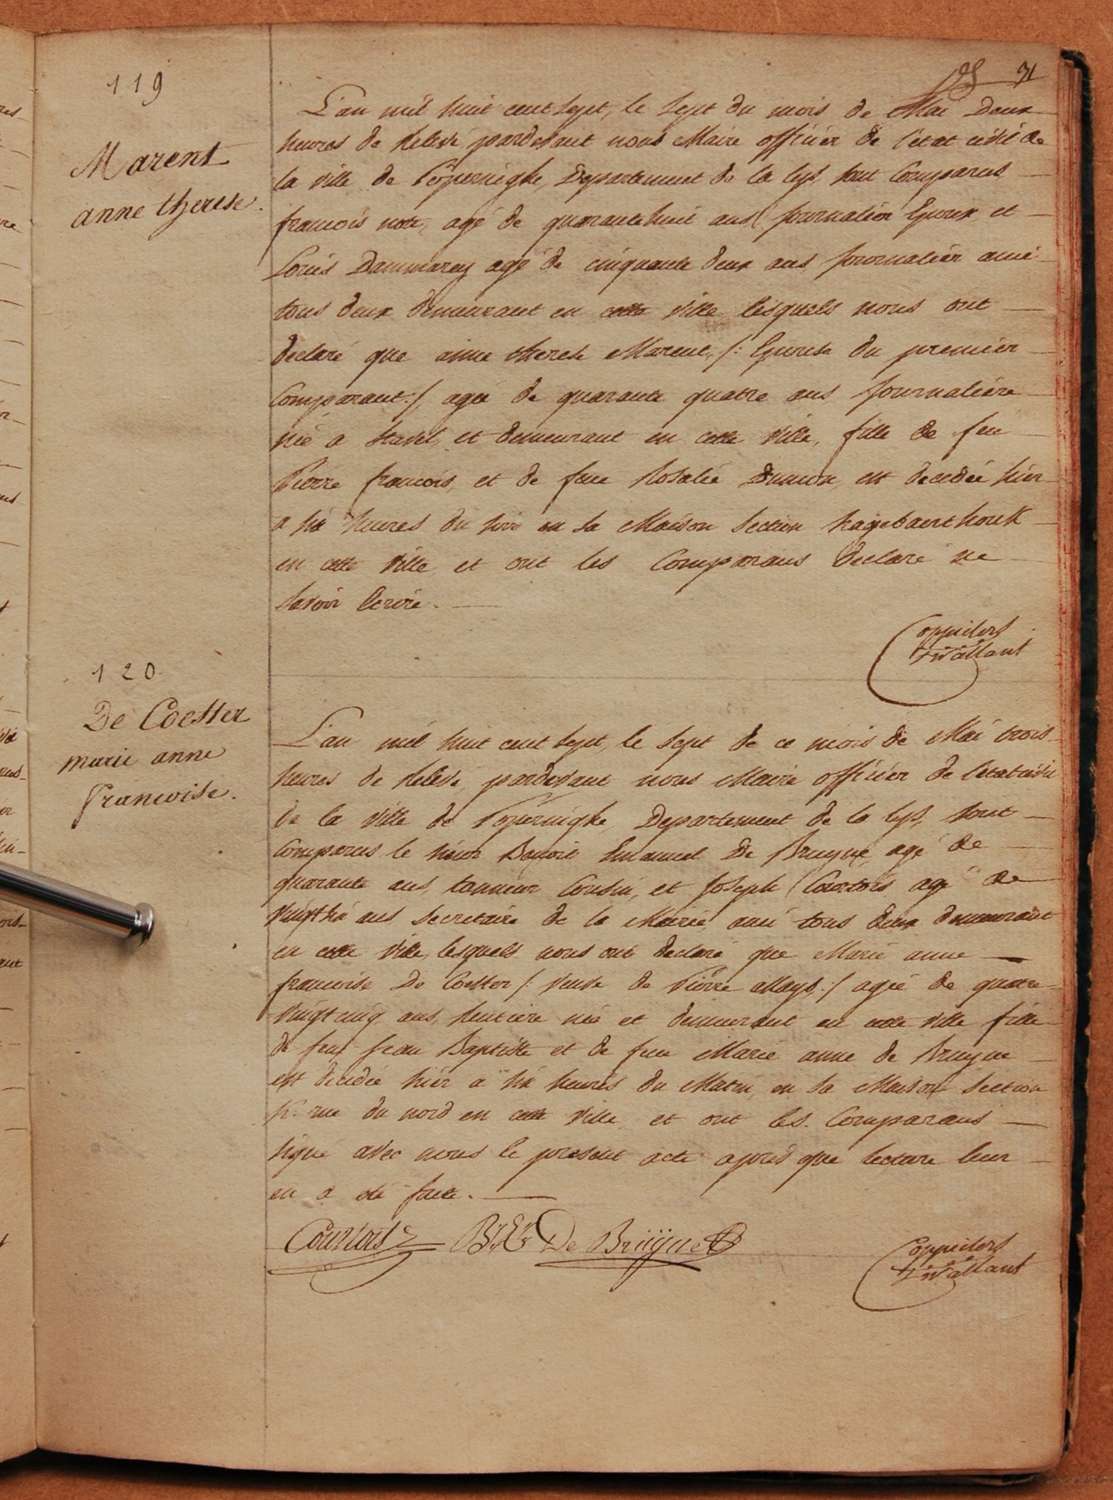 71
119
Marent
anne therese.
L'an mil huit cent sept, le sept du mois de Mai Deux
heures de relevé pardevant nous Maire officier de l'état civil de
la ville de Poperinghe, Departement de la lys, sont Comparus
francois agé de quarantehuit ans, journalier Epoux et
Louis agé de cinquante deux ans journalier ami
tous deux demeurant en cette ville lesquels nous ont
declaré que anne therese Marent, /: Epouse du premier
Comparant :/ agée de quarante quatre ans journalière
née a Stavel, et demeurant en cette ville, fille de feu
Pierre francois, et de feue Rosalie est decedée hier
a six heures du soir en sa Maison Section
en cette ville et ont les Comparans declaré ne
savoir Ecrire.
120
De Coester
marie anne
francoise.
L'an mil huit cent sept, le sept de ce mois de Mai trois
heures de relevé, pardevant nous Maire officier de l'état civil
de la ville de Poperinghe Departement de la lys, sont
Comparus le sieur Benoit Emanuel De Bruyne, agé de
quarante ans, tanneur Cousin, et Joseph Courtois agé de
vingtsix ans secretaire de la Mairie, ami tous deux demeurant
en cette ville, lesquels nous ont declaré que Marie anne
francoise De Coester /: veuve de Pierre Mays :/ agée de quatre
vingt cinq ans, rentiere née et demeurant en cette ville fille
de feu Jean Baptiste et de feue Marie anne de Bruyne
est decedée hier a six heures du Matin, en sa Maison Section
rue du nord en cette ville, et ont les Comparans
signé avec nous le present acte après que lecture leur
en a été faite.
Courtois De Bruyne